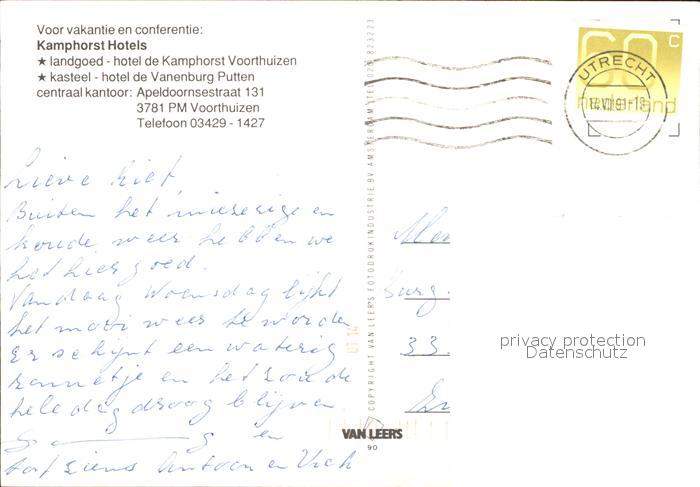 Voor vakantie en conferentie:
Kamphorst Hotels
★ landgoed - hotel de Kamphorst Voorthuizen
★ kasteel - hotel de Vanenburg Putten
centraal kantoor: Apeldoornsestraat 131
3781 PM Voorthuizen
Telefoon 03429 - 1427
60 C
nederland
UTRECHT
Lieve
Buiten het miezerige en
koude weer hebben we
het hier goed.
Vandaag Woensdag lijkt
het mooi weer te worden
Er schijnt een waterig
zonnetje en het zou de
hele dag droog blijven
en
tot ziens Antoon en
burg.
33.
COPYRIGHT VAN LEER'S FOTODRUKINDUSTRIE BV AMSTERDAM TEL 020 - 823223
VAN LEERS
90
privacy protection
Datenschutz